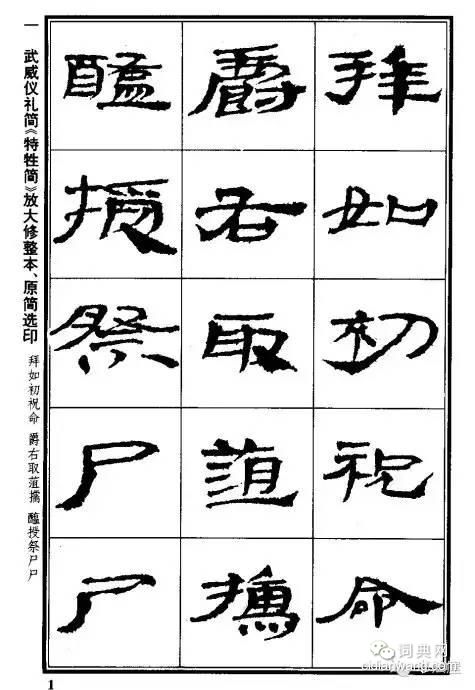 拜如初祝命
爵右取菹擩
醢授祭尸尸
一 武威仪礼简《特牲简》放大修整本、原简选印
拜如初祝命 爵右取菹擩 醢授祭尸尸
1
词典网
cidianwang.com